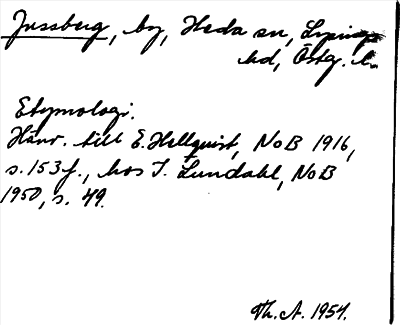 Jussberg, by, Heda sn, Lysings
hd, Östg. l.
Etymologi.
Hänv. till E. Hellquist, NoB 1916,
s. 153 f., hos I. Lundahl, NoB
1950, s. 49.
Th. A. 1954.